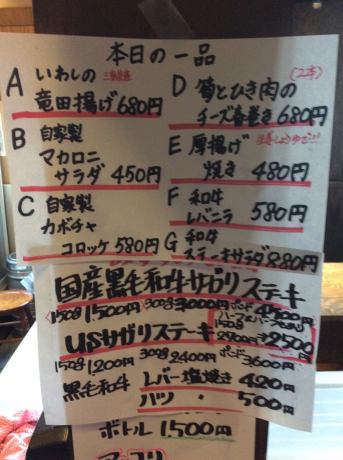 本日の一品
A いわしの 三陸産
竜田揚げ 680円
B 自家製
マカロニ
サラダ 450円
C 自家製
カボチャ
コロッケ 580円
D 筍とひき肉の (2本)
チーズ春巻き 680円
E 厚揚げ 生姜しょうゆで!!!
焼き 480円
F 和牛
レバニラ 580円
G 和牛
ステーキサラダ 880円
国産黒毛和牛サガリステーキ
150g 1500円 300g 3000円 ポンド 4500円
USサガリステーキ
150g 1200円 300g 2400円 ポンド 3,600円
2500円
黒毛和牛 レバー塩焼き 420円
ハツ 〃 500円
ボトル 1500円